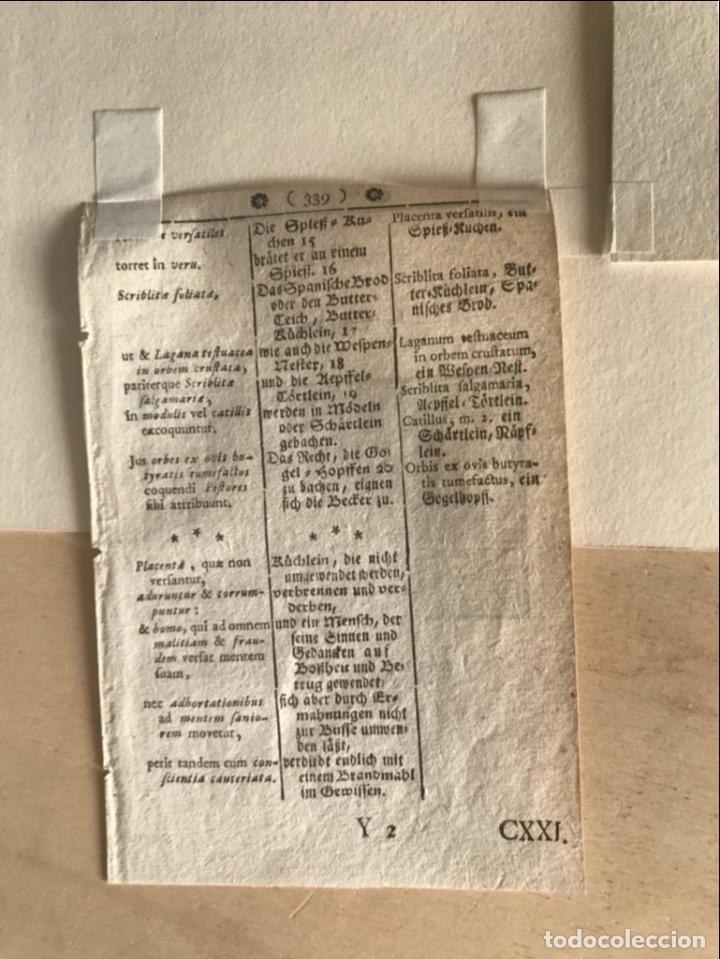 ( 339 )
versatiles
torret in veru.
Scriblitæ foliatæ,
ut & Lagana testuacea
in orbem crustata,
pariterque Scriblitæ
salgamariæ,
in modulis vel catillis
excoquuntur.
Jus orbes ex ovis bu-
tyratis tumefactos
coquendi Pistores
sibi attribuunt.
* * *
Placentæ, quæ non
versantur,
aduruntur & corrum-
puntur:
& homo, qui ad omnem
malitiam & frau-
dem versat mentem
suam,
nec adhortationibus
ad mentem sanio-
rem movetur,
perit tandem cum con-
scientia cauteriata.
Die Spieß-Ku-
chen 15
brätet er an einem
Spieß. 16
Das Spanische Brod
oder den Butter-
Teich, Butter-
Küchlein, 17
wie auch die Wespen-
Nester, 18
und die Aepffel-
Törtlein, 19
werden in Mödeln
oder Schärtlein
gebachen.
Das Recht, die Go-
gel-Hopffen 20
zu bachen, eignen
sich die Becker zu.
* * *
Küchlein, die nicht
umgewendet werden,
verbrennen und ver-
derben,
und ein Mensch, der
seine Sinnen und
Gedancken auf
Boßheit und Be-
trug gewendet,
sich aber durch Er-
mahnungen nicht
zur Busse umwen-
den läßt,
verdirbt endlich mit
einem Brandmahl
im Gewissen.
Placenta versatilis, ein
Spieß-Kuchen.
Scriblita foliata, But-
ter-Küchlein, Spa-
nisches Brod.
Laganum testuaceum
in orbem crustatum,
ein Wespen-Nest.
Scriblita salgamaria,
Aepffel-Törtlein.
Catillus, m. 2. ein
Schärtlein, Näpf-
lein.
Orbis ex ovis butyra-
tis tumefactus, ein
Gogelhopff.
Y 2
CXXI.
todocoleccion